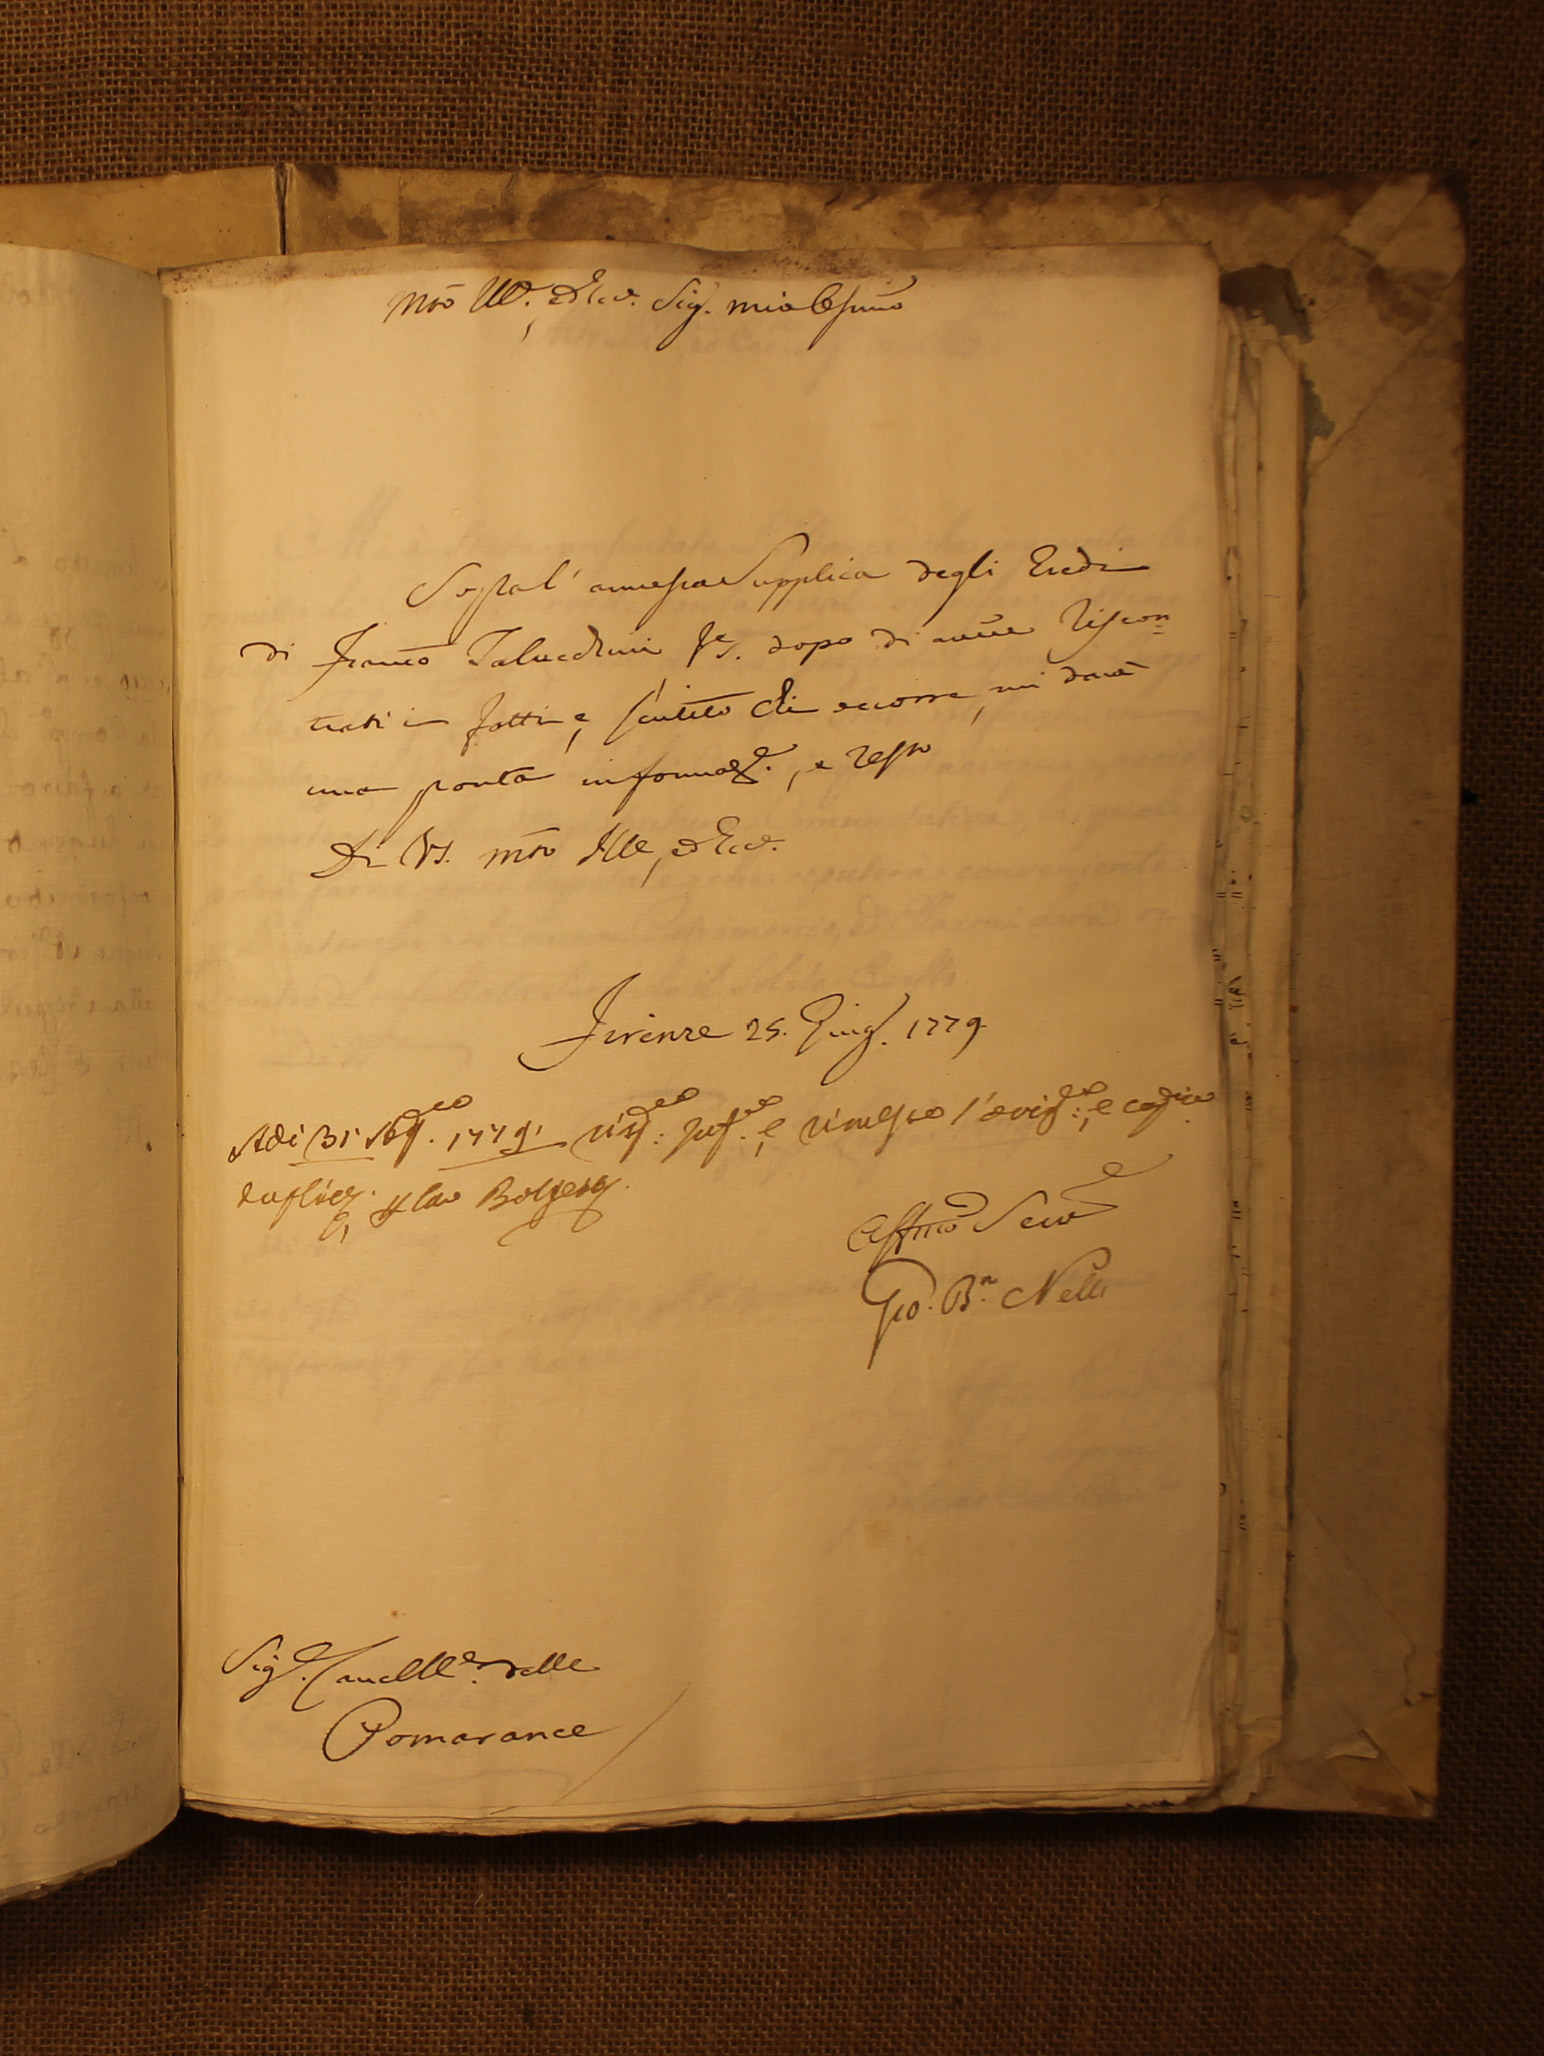 Mto Ill.e, ed Ecc. Sig. mio Ossmo
Sopra l'annessa Supplica degli Eredi
di Franco Talucchini ps. dopo di avere riscon=
trati i fatti e, sentito chi occorre, mi darà
una pronta informaz.e, e resto
Di VS. mto Ille, ed Ecc.
Firenze 25. Giug. 1779.
Adi 31 1779. e rimesso l'orig.le: e copia
e, Bolgeri.
Affmo Serve
Gio. Ba. Nelli
Sig.e Cancell.e delle
Pomarance